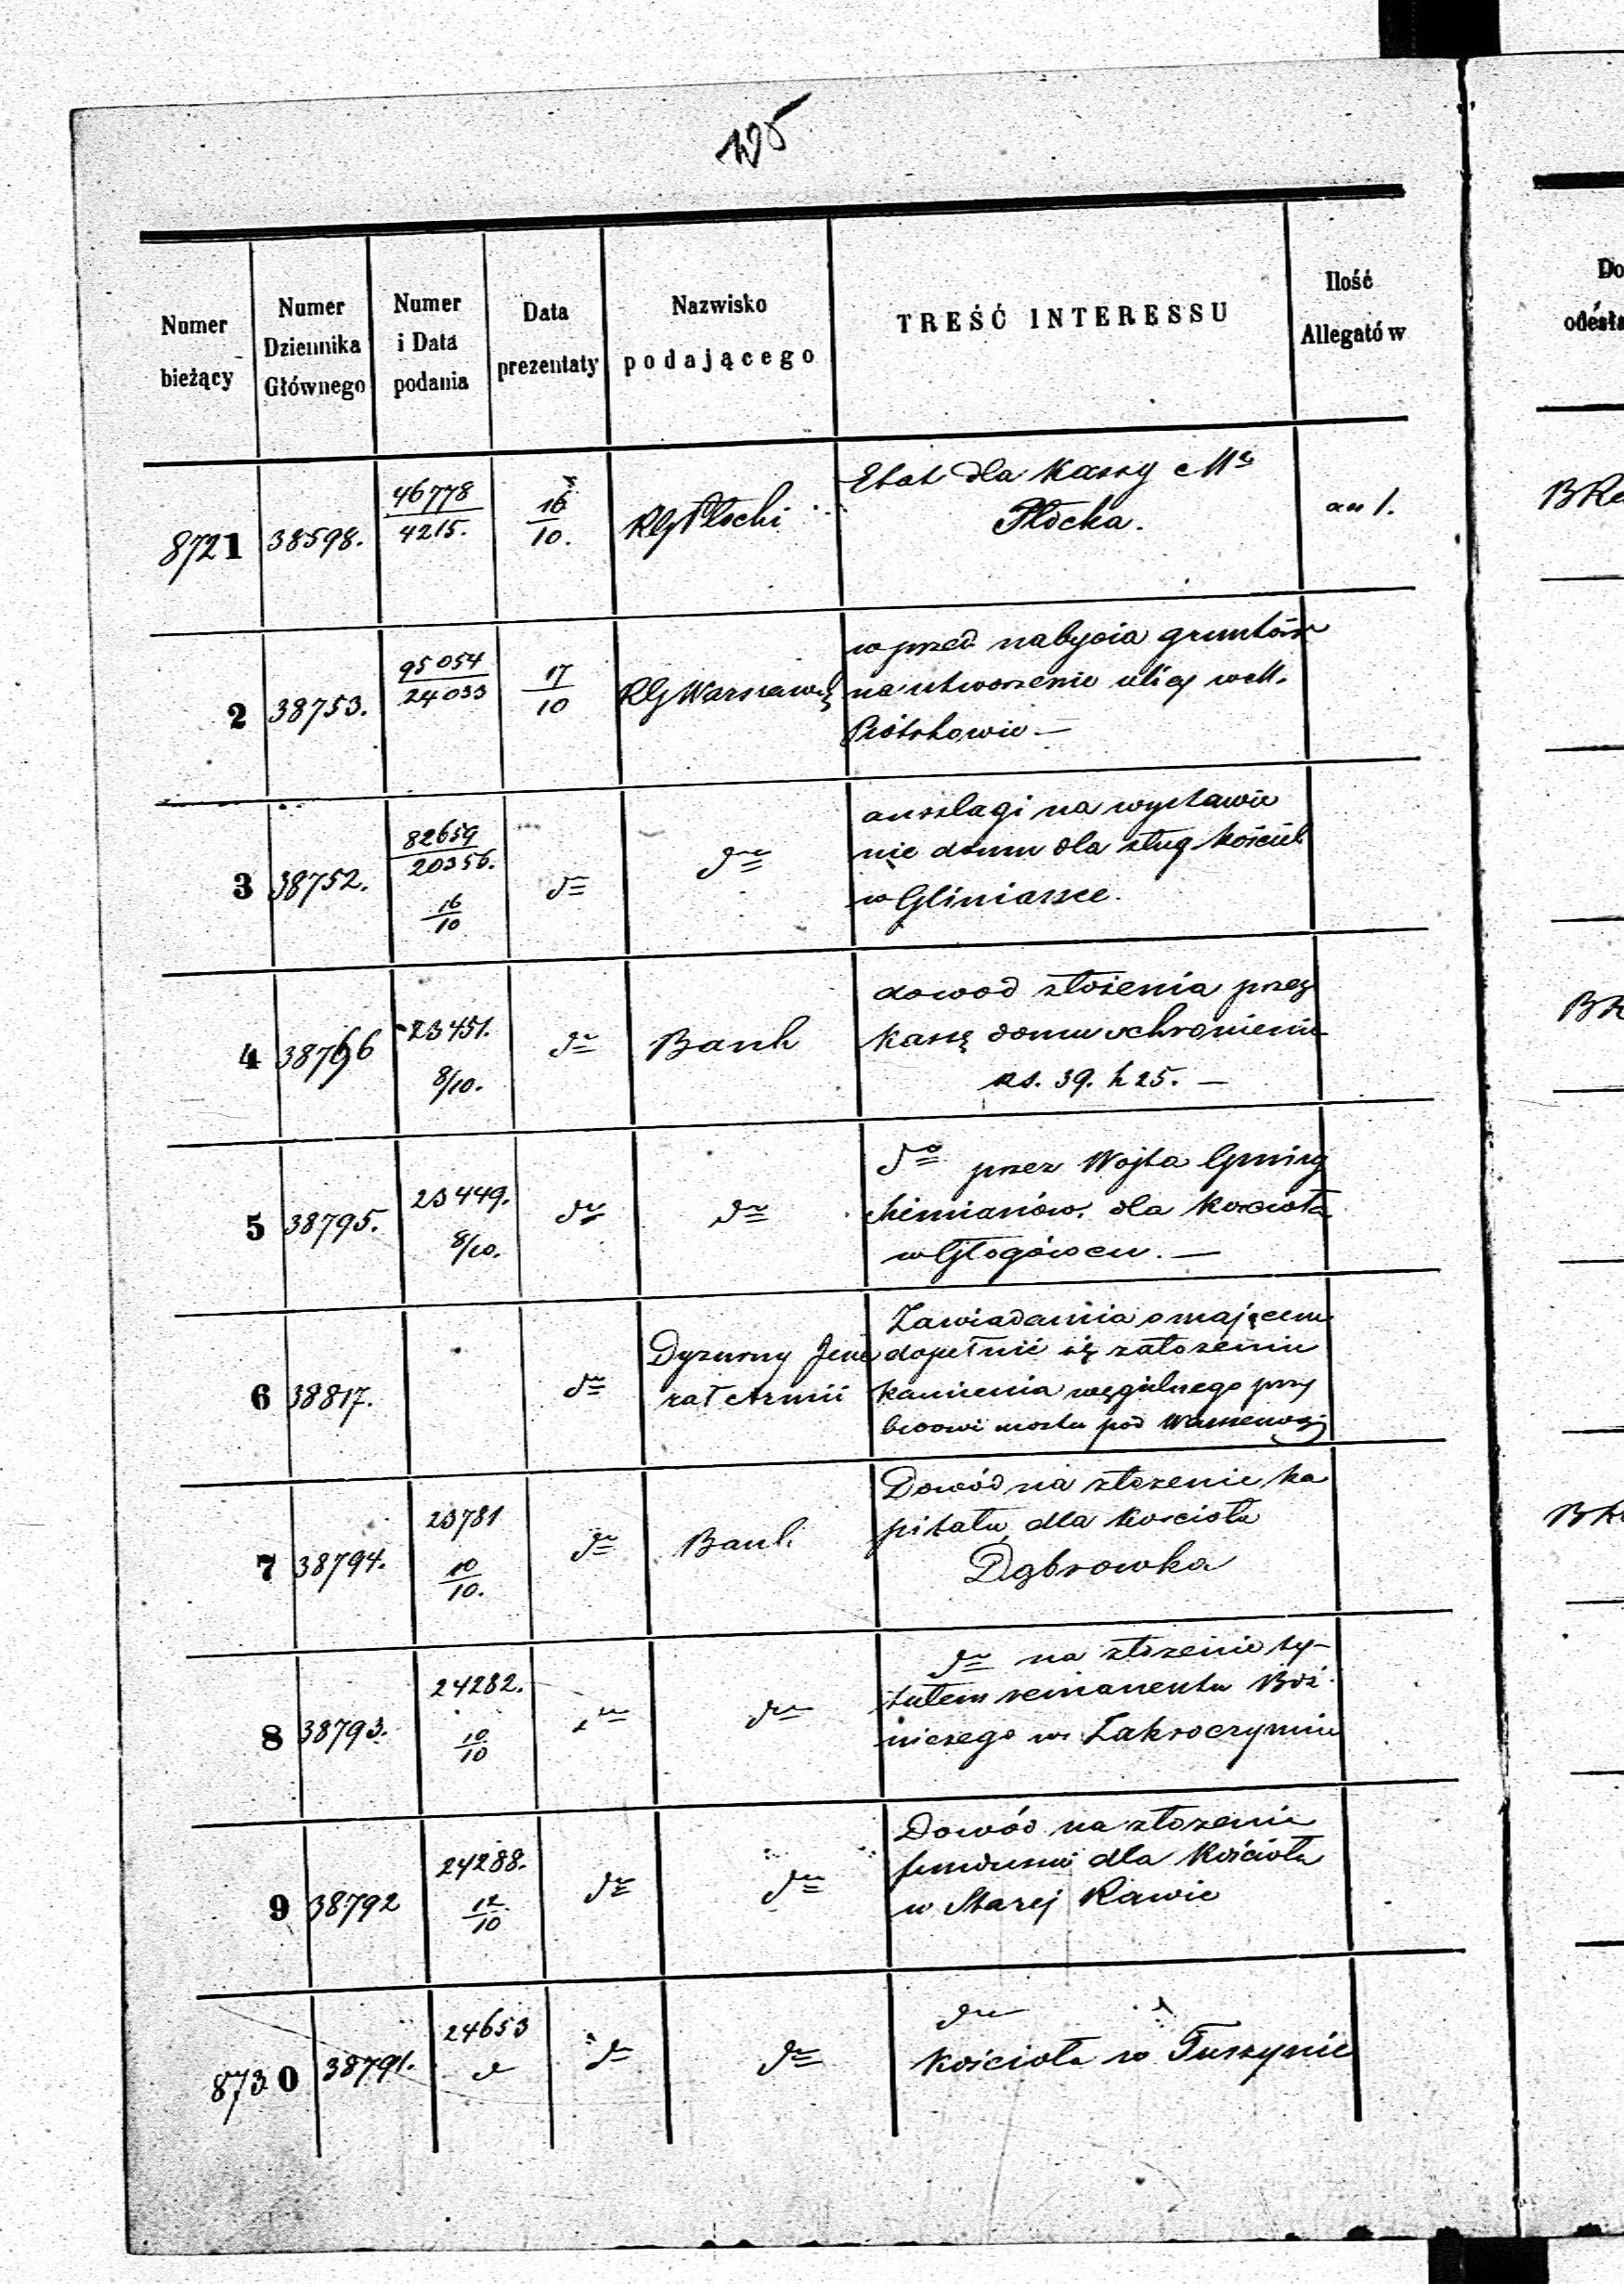 125
Numer bieżący
Numer Dziennika Głównego
Numer i Data podania
Data prezentaty
Nazwisko podającego
TREŚĆ INTERESSU
Ilość Allegatów
8721 38598. 46778/4215. 16/10. RG Płocki
Etat dla Kassy Mta
Płocka.
an 1.
2 38753. 95054/24033 17/10 RG Warszawski
w przed nabycia gruntów
na utworzenie ulicy w M.
Piotrkowie —
3 38752. 82659/20356. 16/10 dto dto
anszlagi na wystawie
nie domu dla sług kościel.
w Gliniance.
4 38766 23451. 8/10. dto Bank
dowod złożenia przez
Kassę domu schronienia
rs. 39. k 25. —
5 38795. 23449. 8/10. dto dto
dto przez Wojta Gminy
dla Kościoła
w Głogówcu. —
6 38817. dto
Dyzurny Jene
rał Armii
Zawiadamia o mającem
dopełnić się założeniu
kamienia węgielnego przy
mostu pod Warszawą
7 38794. 23781 10/10. dto Bank
Dowód na złożenie ka
pitału dla Kościoła
Dąbrowka
8 38793. 24282. 10/10 dto dto
dto na złożenie ty-
tułem remanentu Boż
niczego w Zakroczymiu
9 38792 24288. 12/10 dto dto
Dowód na złożenie
funduszu dla Kościoła
w Starej Rawie
8730 38791. 24653 d dto dto
dto
Kościoła w Tuszynie